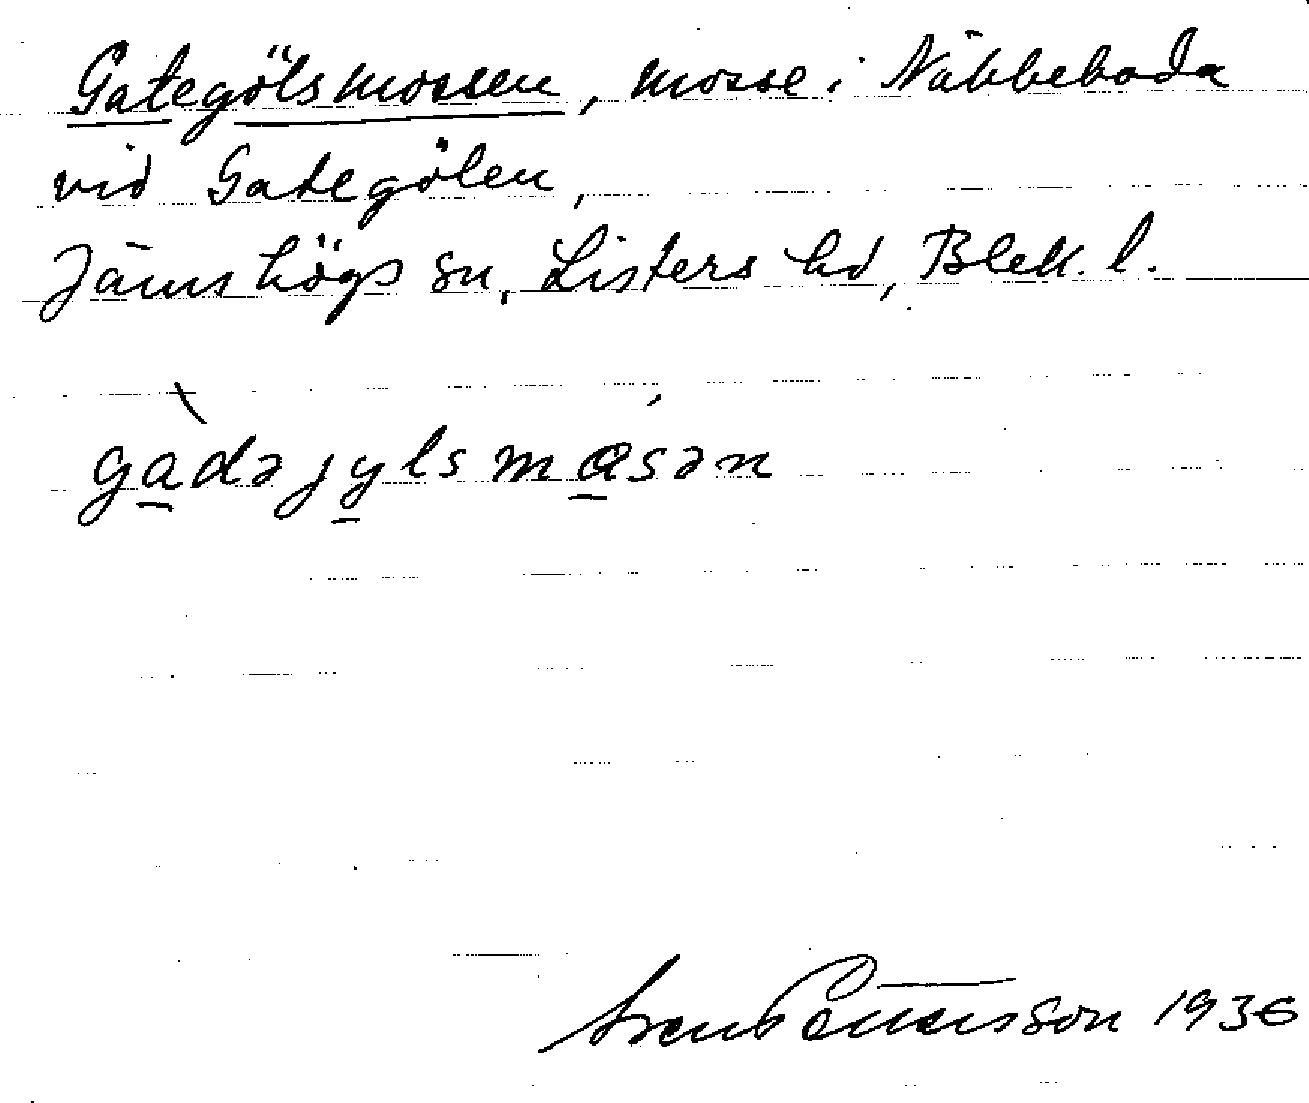 Gategölsmossen, mosse i Näbbeboda
vid Gategölen,
Jämshögs sn, Listers hd, Blek. l.
gàdəjylsmɑ́sən
Sven Pettersson 1936